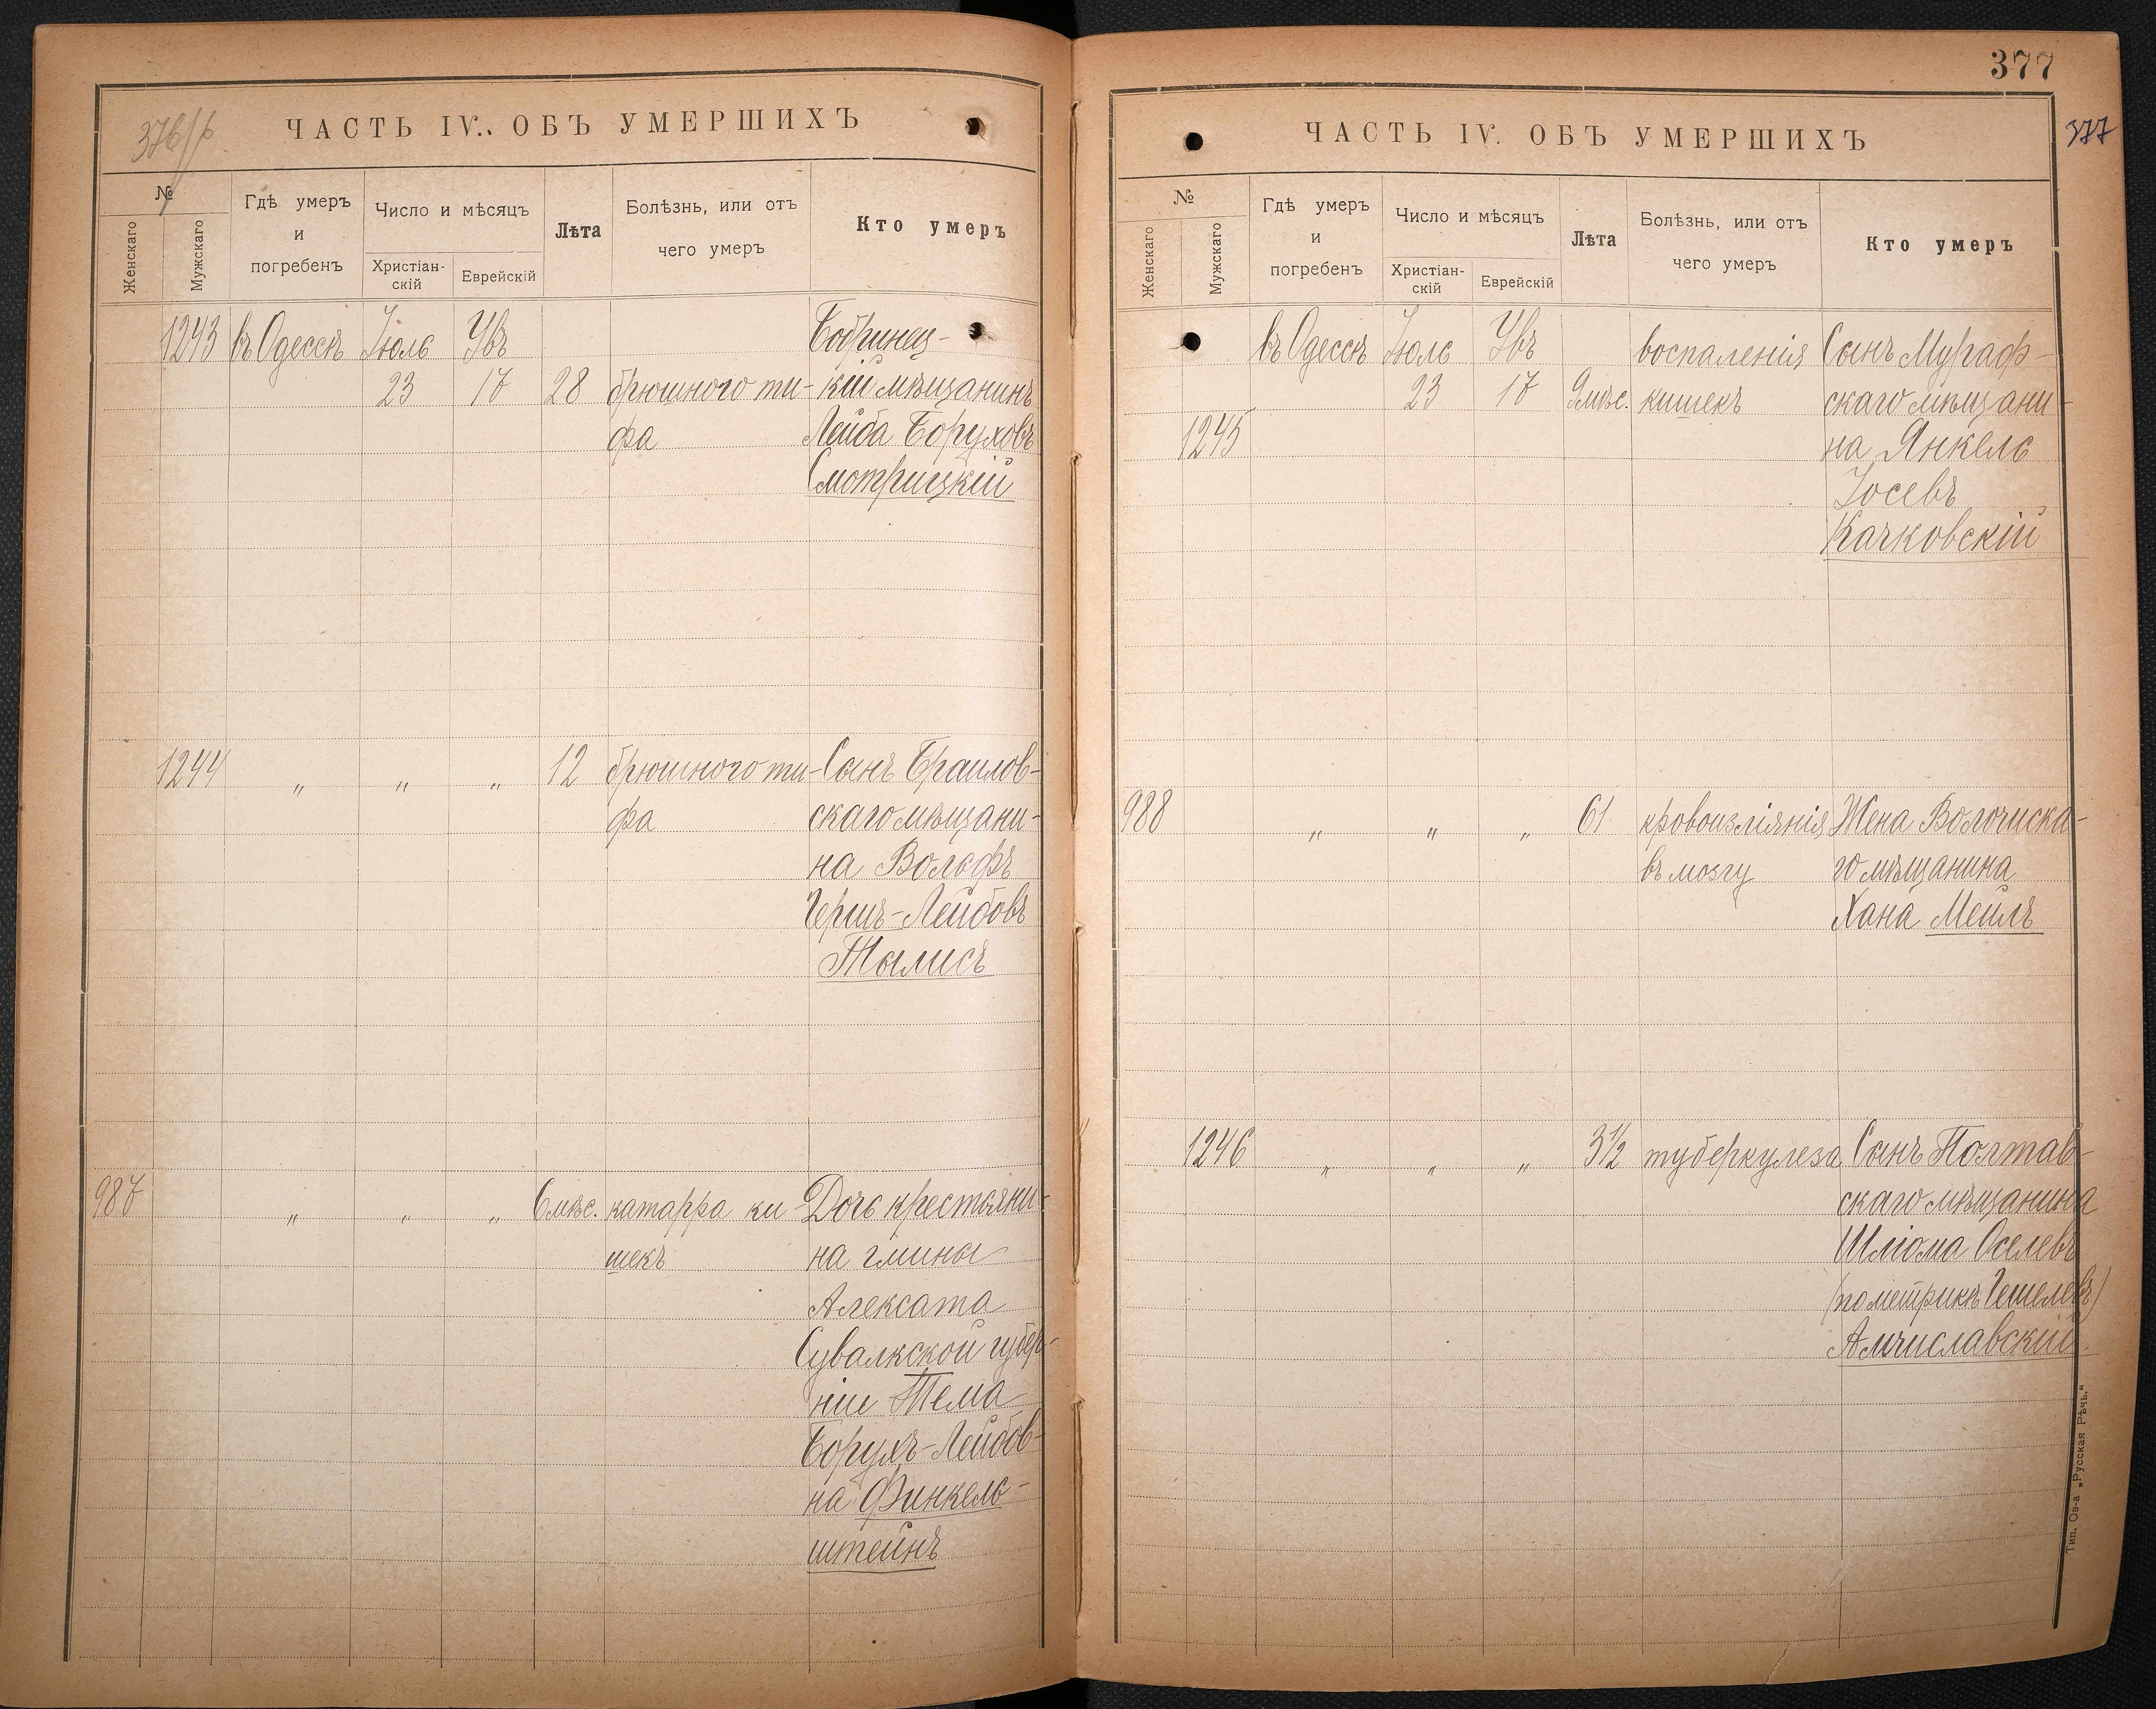 376/б
ЧАСТЬ IV. ОБЪ УМЕРШИХЪ
№
Женскаго
Мужскаго
Гдѣ умеръ
и
погребенъ
Число и мѣсяцъ
Христіан-
скій
Еврейскій
Лѣта
Болѣзнь, или отъ
чего умеръ
Кто умеръ
1243 въ Одессѣ Іюль Увъ Бобринец-
23 17 28 брюшного ти- кій мѣщанинъ
фа Лейба Боруховъ
Смотрицкій
1244 „ „ „ 12 брюшного ти- Сынъ Браилов-
фа скаго мѣщани-
на Вольфъ
Гершъ-Лейбовъ
Тылисъ
987 „ „ „ 6 мѣс. катарра ки- Дочь крестьяни-
шекъ на гмины
Алексата
Сувалкской губер-
ніи Тема
Борухъ-Лейбов-
на Финкель-
штейнъ
377
377
ЧАСТЬ IV. ОБЪ УМЕРШИХЪ
№
Женскаго
Мужскаго
Гдѣ умеръ
и
погребенъ
Число и мѣсяцъ
Христіан-
скій
Еврейскій
Лѣта
Болѣзнь, или отъ
чего умеръ
Кто умеръ
въ Одессѣ Іюль Увъ воспаленія Сынъ Мураф-
23 17 9 мѣс. кишекъ скаго мѣщани-
1245 на Янкель
Іосевъ
Качковскій
988 „ „ „ 61 кровоизліянія Жена Волочиска-
въ мозгу го мѣщанина
Хана Мейлъ
1246 „ „ „ 3½ туберкулеза Сынъ Полтав-
скаго мѣщанина
Шліома Оселевъ
(по метрикѣ Гешелевъ)
Амчиславскій.
Тип. Ов-а „Русская Рѣчь."